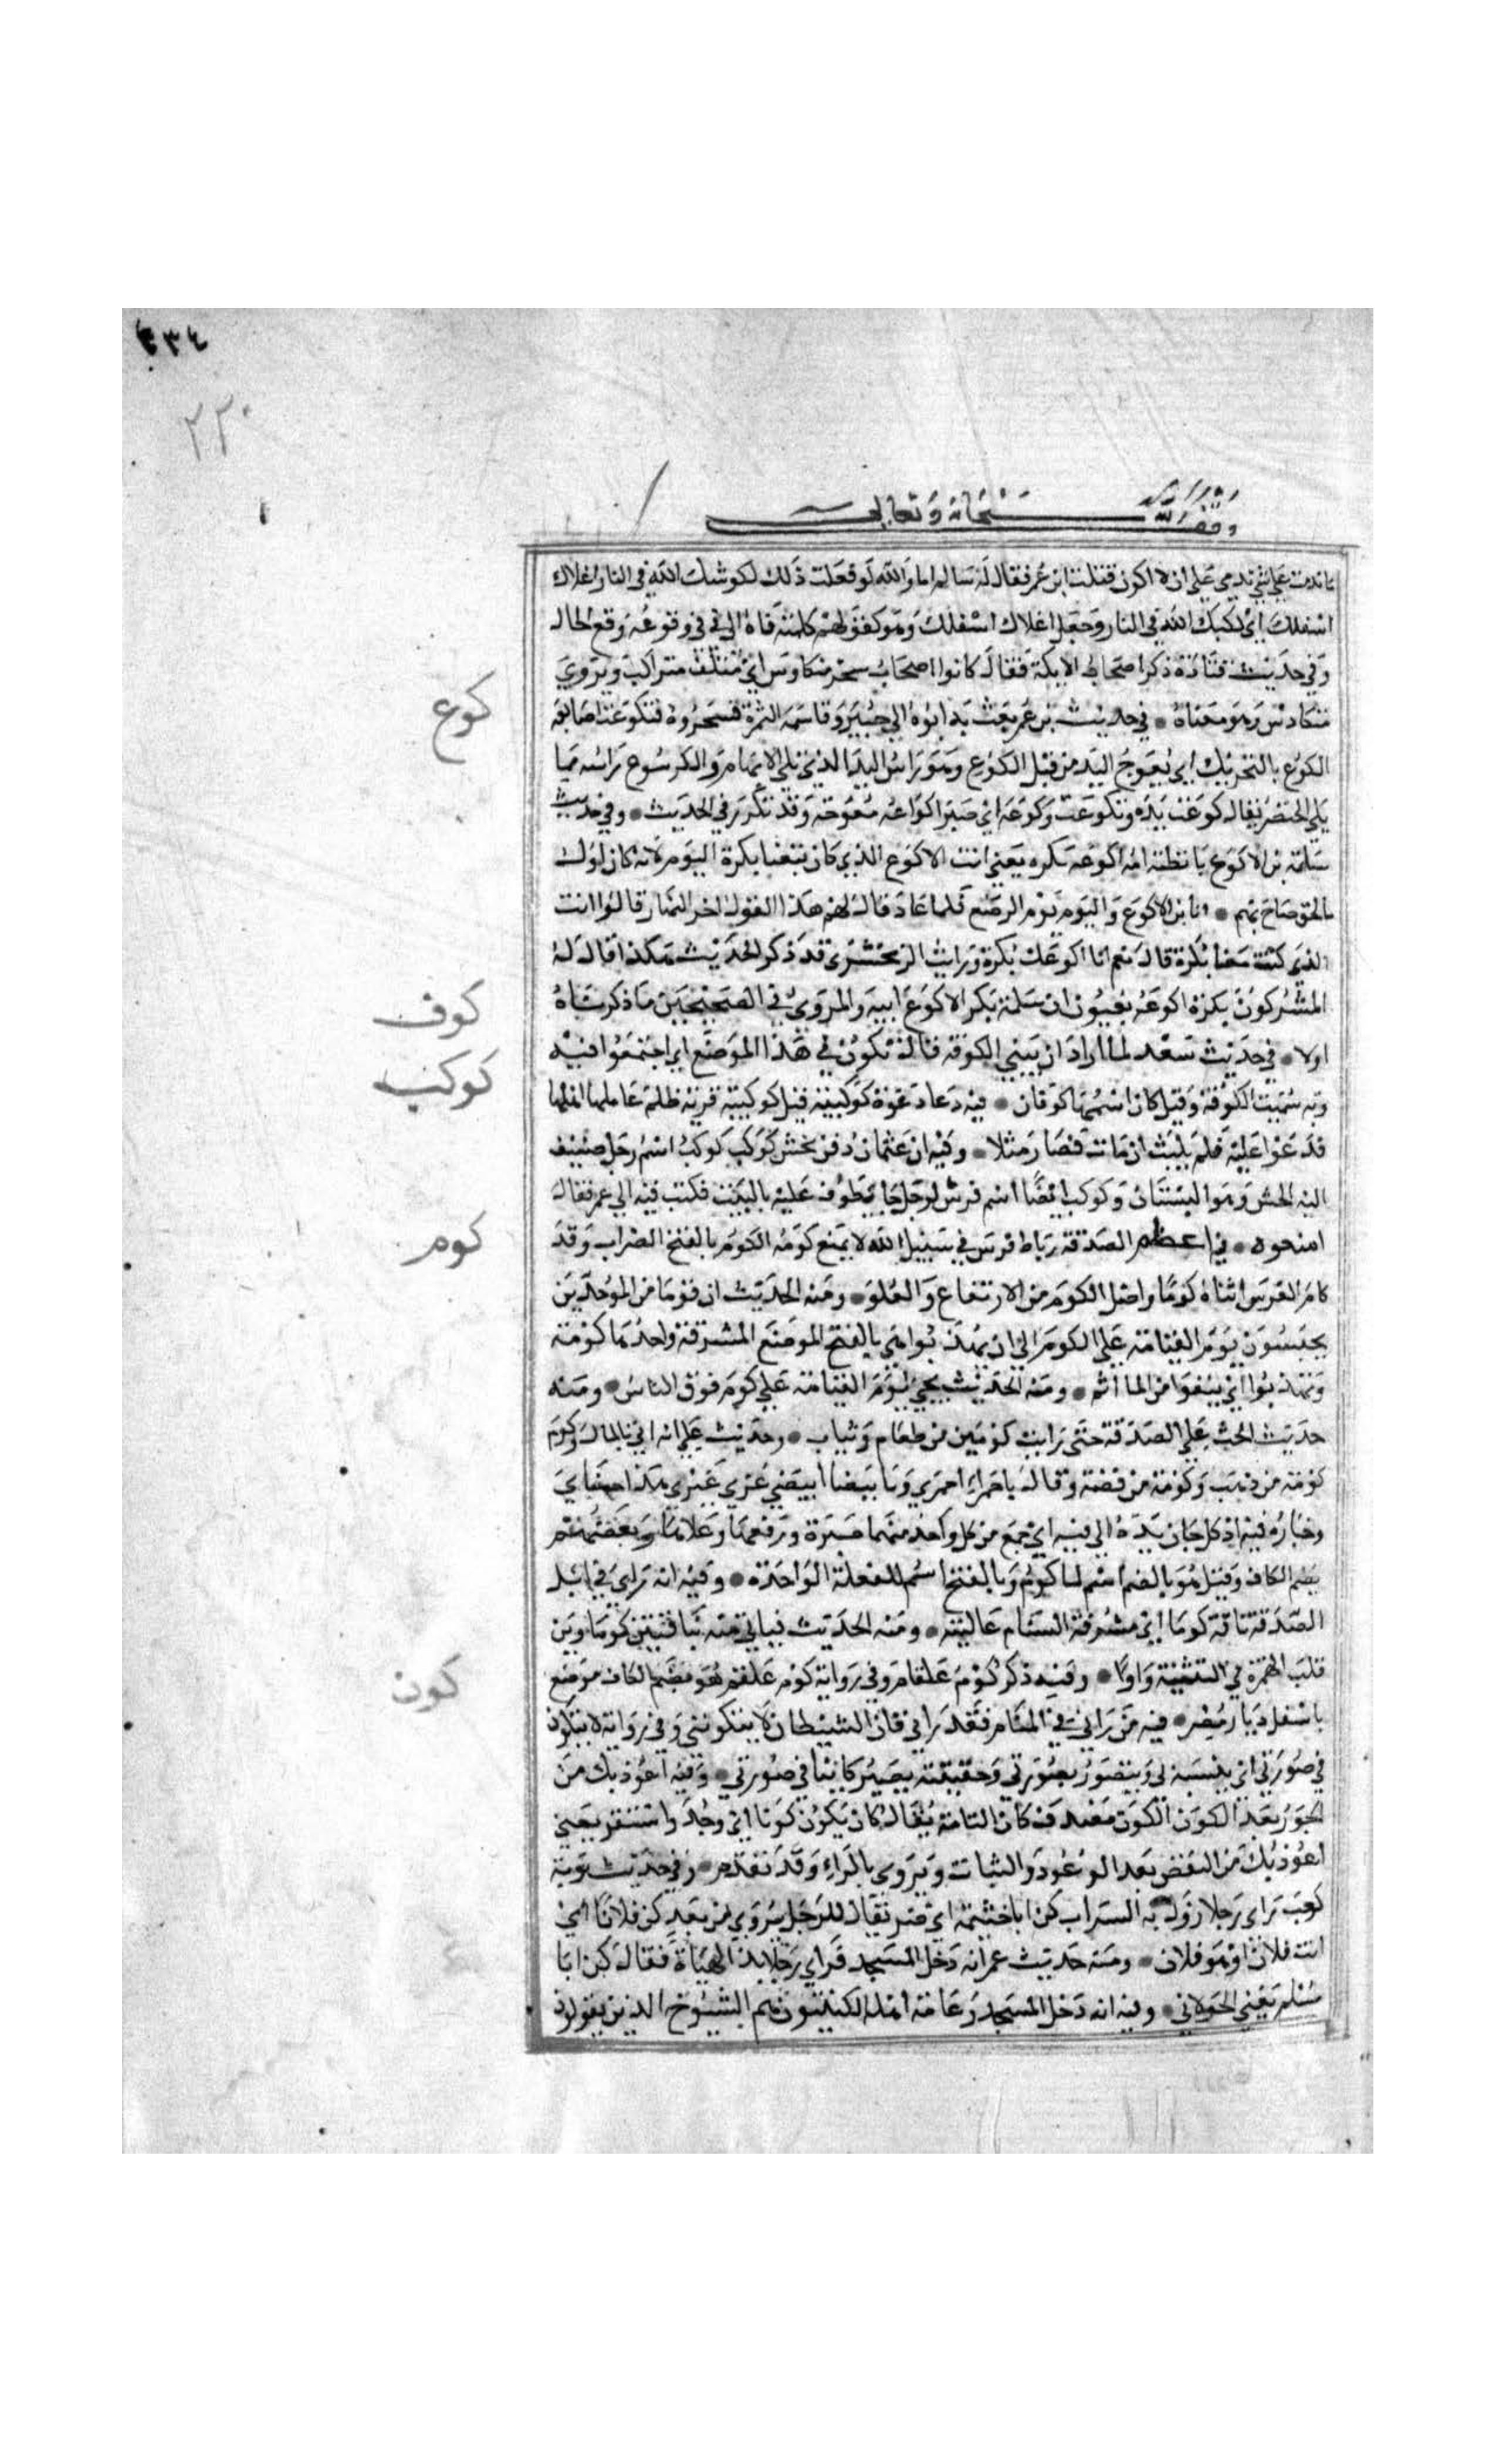 ٤٣٤
٢٣٠
وقف لله سبحانه وتعالى
ما ندمت على شي ندمي على ان لا اكون قتلت ابن عمر فقال له سالم اما والله لو فعلت ذلك لكوسك الله في النار اعلاك
اسفلك اي لكبك الله في النار وجعل اعلاك اسفلك وهو كقولهم كلمته فاه الى في في وقوعه موقع الحال
وفي حديث قتادة ذكر اصحاب الايكة فقال كانوا اصحاب شجر متكاوس اي ملتف متراكب ويروي
متكادس وهو معناه في حديث بن عمر بعث به ابوه الي خيبر وقاسمه الثمرة فسحروه فتكوعت اصابعه
كوع
الكوع بالتحريك اي يعوج اليد من قبل الكوع وهو راس اليد الذي يلي الابهام والكرسوع راسه مما
يلي الخنصر يقال كوعت يده وتكوعت وكوعه اي صير اكواعه معوجة وقد تكرر في الحديث وفي حديث
سلمة بن الاكوع يا ثكلته امه اكوعه بكره يعني انت الاكوع الذي كان تبعنا بكرة اليوم لانه كان اول
ما لحق صاح بهم انا ابن الاكوع واليوم يوم الرضع فلما عاد قال لهم هذا القول اخر النهار قالوا انت
الذي كنت معنا بكرة قال نعم انا اكوعك بكرة ورايت الزمخشري قد ذكر الحديث هكذا قال له
المشركون بكرة اكوعه يعنون ان سلمة بكر الاكوع ابيه والمروي في الصحيحين ما ذكرناه
كوف
اولا في حديث سعد لما اراد ان يبني الكوفة قال تكونوا في هذا الموضع اي اجتمعوا فيه
كوكب
وبه سميت الكوفة وقيل كان اسمها كوفان فيه دعا دعوة كوكبية قيل كوكبية قرية ظلم عاملها اهلها
فدعوا عليه فلم يلبث ان مات فصار مثلا وفيه ان عثمان دفن بحش كوكب كوكب اسم رجل اضيف
اليه الحش وهو البستان وكوكب ايضا اسم فرس لرجل جا يطوف عليه بالبيت فكتب فيه الي عمر فقال
كوم
امنعوه في اعظم الصدقة رباط فرس في سبيل الله لا يمنع كومه الكوم بالفتح الضراب وقد
كام الفرس انثاه كوما واصل الكوم من الارتفاع والعلو ومنه الحديث ان قوما من الموحدين
يحبسون يوم القيامة علي الكوم الي ان يهذبوا هي بالفتح المواضع المشرفة واحدها كومة
وتهذبوا اي ينقوا من الماثم ومنه الحديث يجي يوم القيامة علي كوم فوق الناس ومنه
حديث الحث علي الصدقة حتى رايت كومين من طعام وثياب وحديث علي انه اتي بالمال فكوم
كومة من ذهب وكومة من فضة وقال يا حمرا احمري ويا بيضا ابيضي غري غيري هذا جناي
وخياره فيه اذ كل جان يده الي فيه اي جمع من كل واحد منهما صبرة ورفعها وعلاها وبعضهم
بضم الكاف وقيل هو بالضم اسم لما كوم وبالفتح اسم للفعلة الواحدة وفيه انه راي في ابل
الصدقة ناقة كوما اي مشرفة السنام عاليته ومنه الحديث فياتي منه بناقتين كوماوين
قلب الهمزة في التثنية واوا وفيه ذكر كوم علقام وفي رواية كوم علقم هو بضم الكاف موضع
كون
باسفل ديار مصر فيه من راني في المنام فقد راني فان الشيطان لا يتكونني وفي رواية لا يتكون
في صورتي اي يتشبه بي ويتصور بصورتي وحقيقته يصير كاينا في صورتي وفيه اعوذ بك من
الحور بعد الكون الكون مصدر كان التامة يقال كان يكون كونا اي وجد واستقر يعني
اعوذ بك من النقص بعد الوجود والثبات ويروي بالراء وقد تقدم وفي حديث توبة
كعب راي رجلا يزول به السراب كن ابا خيثمة اي صر يقال للرجل يري من بعد كن فلانا اي
انت فلان او هو فلان ومنه حديث عمر انه دخل المسجد فراي رجلا بذ الهياة فقال كن ابا
مسلم يعني الخولاني وفيه انه دخل المسجد وعامة اهله الكنتيون هم الشيوخ الذين يقولون